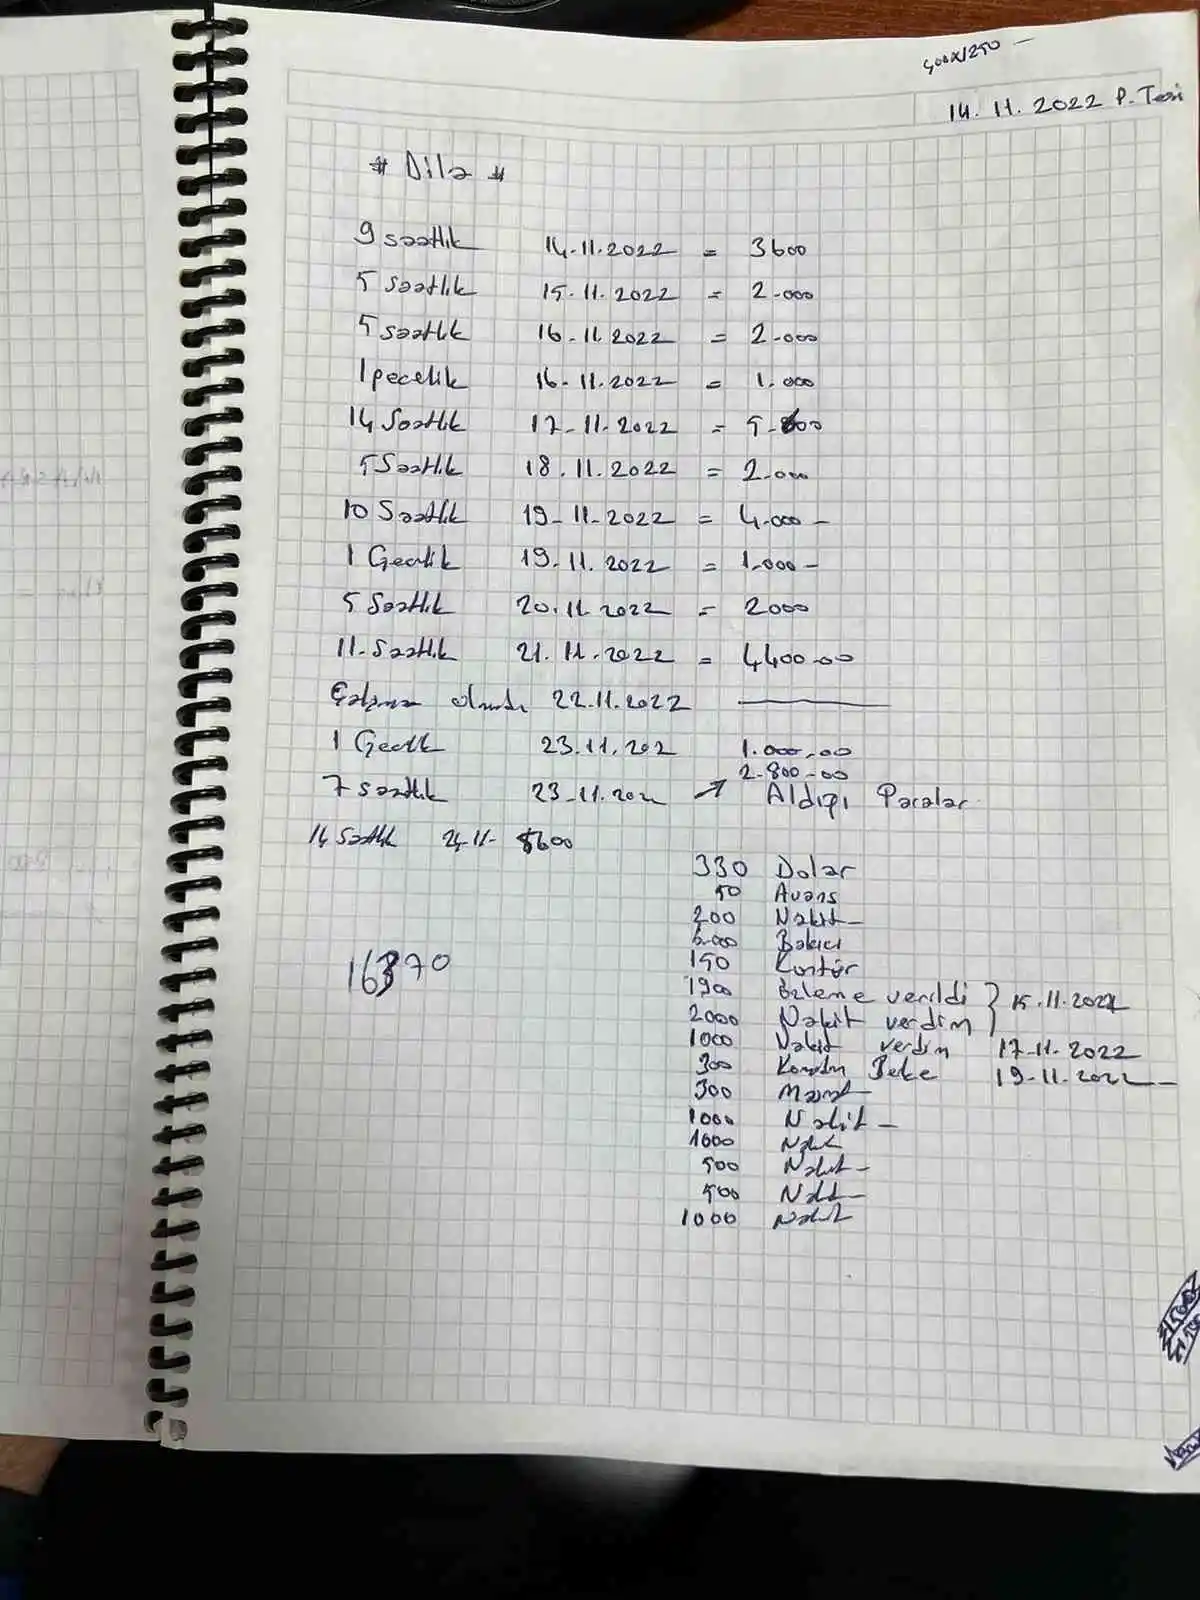 400X1250 -
14.11.2022 P.Tesi
* Dila *
9 saatlik 14.11.2022 = 3600
5 saatlik 15.11.2022 = 2.000
5 saatlik 16.11.2022 = 2.000
1 pecelik 16.11.2022 = 1.000
14 Saatlik 17.11.2022 = 5.600
5 Saatlik 18.11.2022 = 2.000
10 Saatlik 19-11-2022 = 4.000 -
1 Gecelik 19.11.2022 = 1.000 -
5 Saatlik 20.11.2022 = 2000
11 Saatlik 21.11.2022 = 4400.00
Çalışma olmadı 22.11.2022
1 Gecelik 23.11.202 1.000,00
2.800-00
7 saatlik 23-11.202
Aldıpı Paralar
14 Saatlik 24.11- 5600
330 Dolar
50 Avans
200 Nakit
Bakıcı
150 Kontör
16370
1900 verildi
2000 Nakit verdim 15.11.2022
1000 Nakit verdim 17-11.2022
300 19-11.2022
300
1000 Nakit -
1000 Nakit
500 Nakit
500 Nakit
1000 Nakit